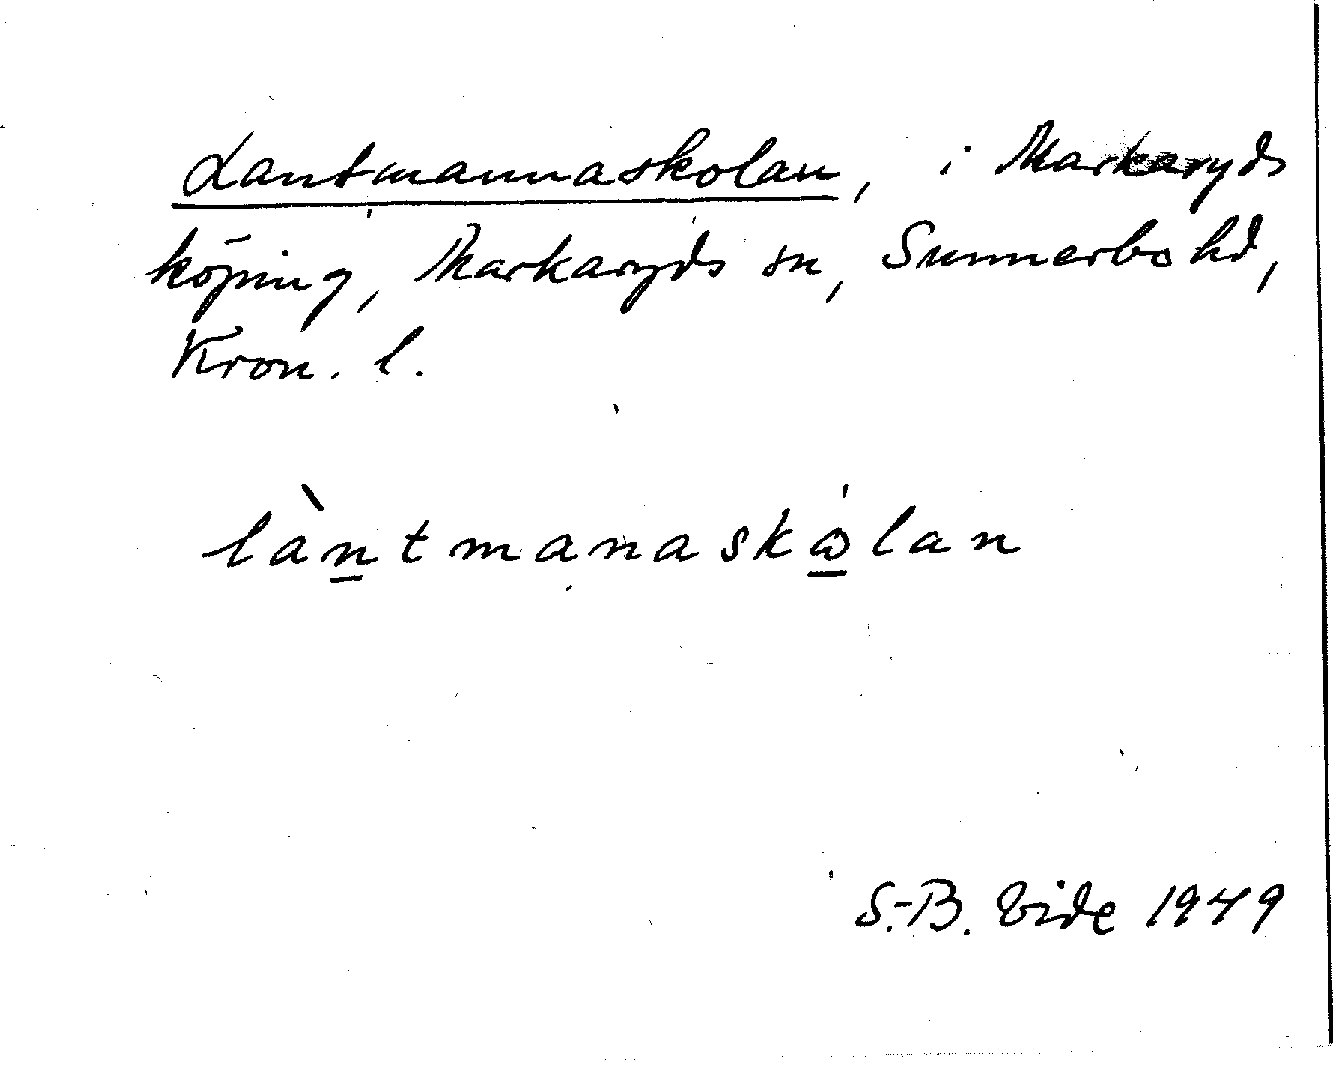 Lantmannaskolan, i Markaryds
köping, Markaryds sn, Sunnerbo hd,
Kron. l.
làn̲tmanaskώ̲lan
S.-B. Vide 1949